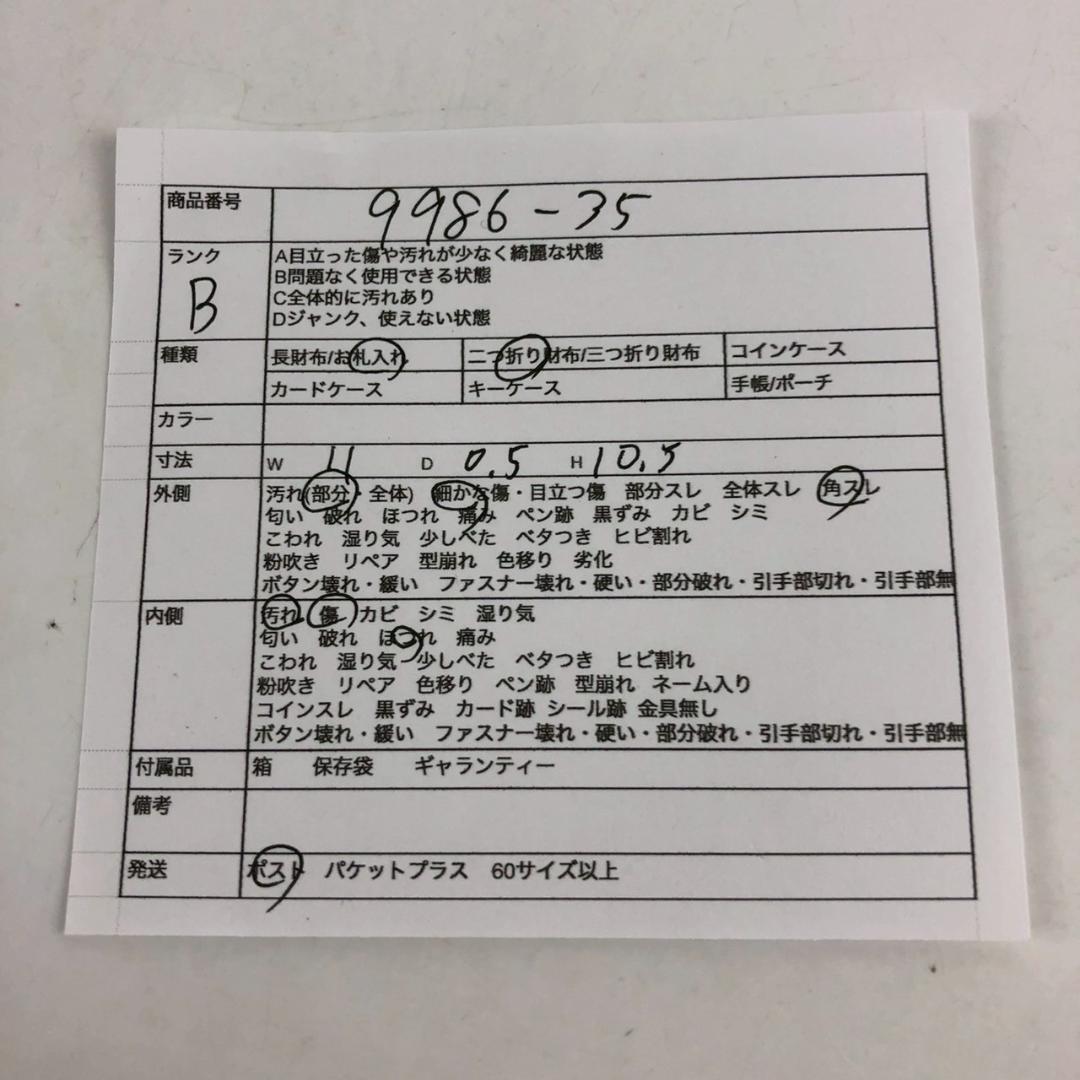 商品番号 9986-35
ランク B
A目立った傷や汚れが少なく綺麗な状態
B問題なく使用できる状態
C全体的に汚れあり
Dジャンク、使えない状態
種類 長財布/お札入れ 二つ折り財布/三つ折り財布 コインケース
カードケース キーケース 手帳/ポーチ
カラー
寸法 W 11 D 0.5 H 10.5
外側 汚れ(部分・全体) 細かな傷・目立つ傷 部分スレ 全体スレ 角スレ
匂い 破れ ほつれ 痛み ペン跡 黒ずみ カビ シミ
こわれ 湿り気 少しべた ベタつき ヒビ割れ
粉吹き リペア 型崩れ 色移り 劣化
ボタン壊れ・緩い ファスナー壊れ・硬い・部分破れ・引手部切れ・引手部無
内側 汚れ 傷 カビ シミ 湿り気
匂い 破れ ほつれ 痛み
こわれ 湿り気 少しべた ベタつき ヒビ割れ
粉吹き リペア 色移り ペン跡 型崩れ ネーム入り
コインスレ 黒ずみ カード跡 シール跡 金具無し
ボタン壊れ・緩い ファスナー壊れ・硬い・部分破れ・引手部切れ・引手部無
付属品 箱 保存袋 ギャランティー
備考
発送 ポスト パケットプラス 60サイズ以上